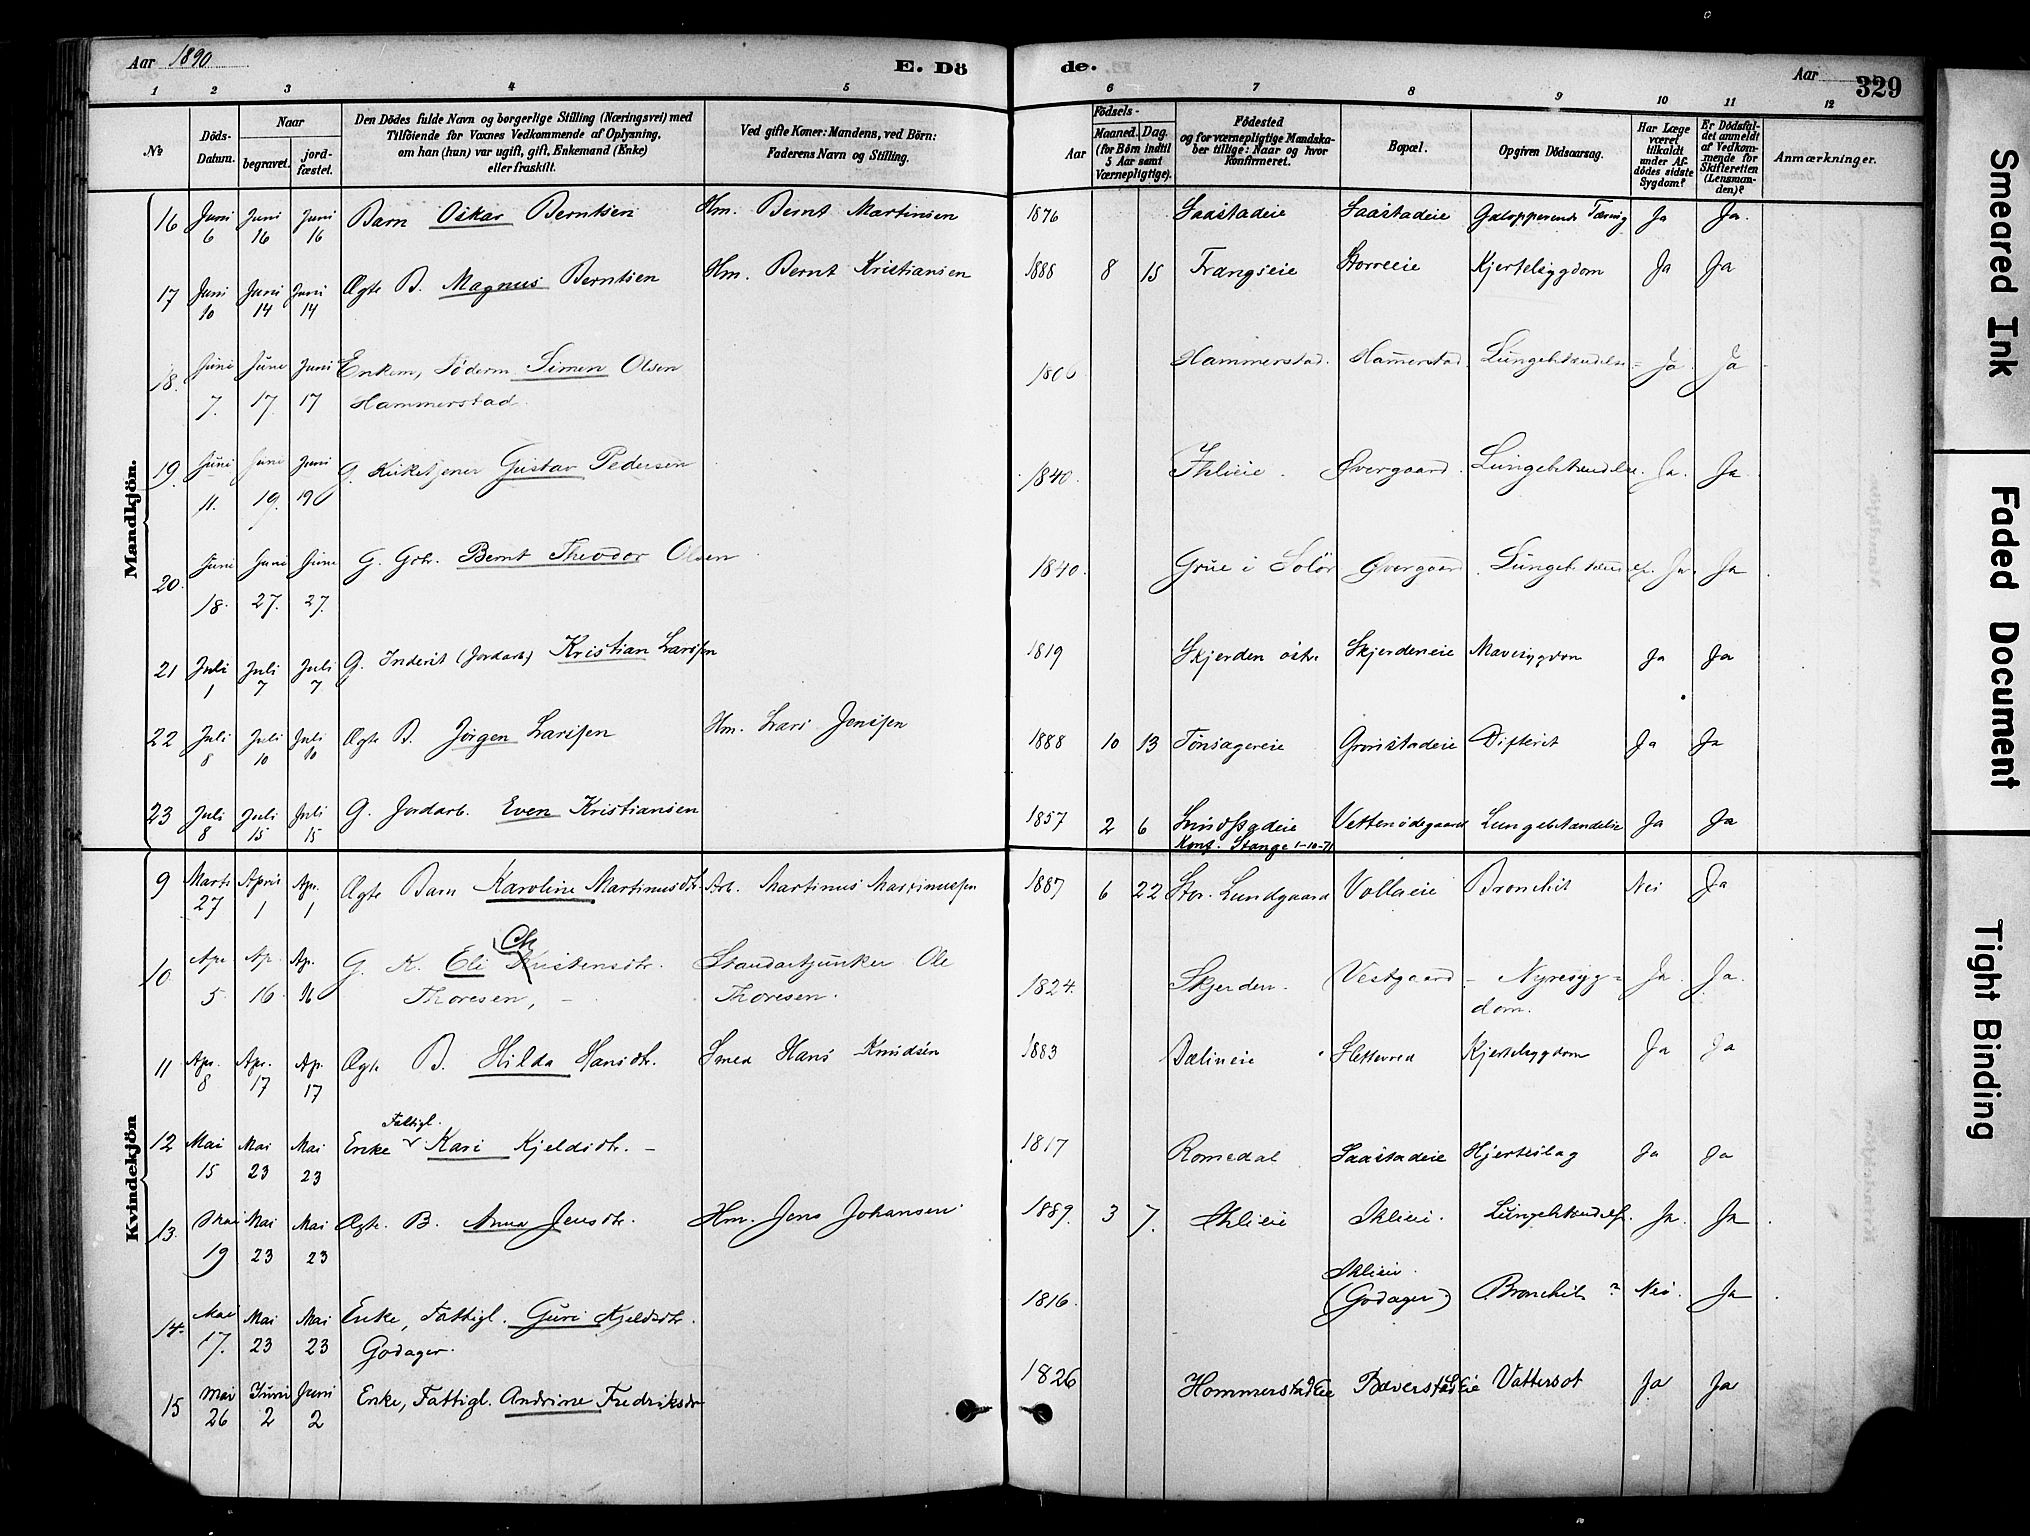 Aar 1890
E. Dö de.
Aar
329
1 2 3 4 5 6 7 8 9 10 11 12
№
Döds-Datum.
Naar
begravet.
jordfæstet.
Den Dödes fulde Navn og borgerlige Stilling (Næringsvei) med
Tilföiende for Voxnes Vedkommende af Oplysning,
om han (hun) var ugift, gift, Enkemand (Enke)
eller fraskilt.
Ved gifte Koner: Mandens, ved Börn:
Faderens Navn og Stilling.
Födsels-
Aar
Maaned. Dag.
(for Börn indtil
5 Aar samt
Værnepligtige).
Födested
og for værnepligtige Mandska-
ber tillige: Naar og hvor
Konfirmeret.
Bopæl.
Opgiven Dödsaarsag.
Har Læge
været
tilkaldt
under Af-
dödes sidste
Sygdom?
Er Dödsfal-
det anmeldt
af Vedkom-
mende for
Skifteretten
(Lensman-
den)?
Anmærkninger.
Mandkjön.
16 Juni 6 Juni 16 Juni 16 Barn Oskar Berntsen Hm. Bernt Martinsen 1876 Saastadeie Saastadeie Galopperende Tæring Ja Ja.
17 Juni 10 Juni 14 Juni 14 Ægte B. Magnus Berntsen Hm. Bernt Kristiansen 1888 8 15 Trangseie Storreeie Kjertelsygdom Ja Ja
18. Juni 7. Juni 17. Juni 17 Enkem, Söderm Simen Olsen
Hammerstad. 1806 Hammerstad. Hamerstad. Lungebetændelse Ja. Ja
19. Juni 11. Juni 19. Juni 19 G. Kirketjener Gustav Pedersen 1840. Ihlieie. Övergaard. Lungebetændelse. Ja. Ja
20. Juni 18. Juni 27. Juni 27. G. Gbr. Bernt Theodor Olsen 1840. Grue i Solör Övergaard. Lungebetænd. Ja. Ja
21 Juli 1 Juli 7 Juli 7 G. Inderst (Jordarb.) Kristian Larssen 1819 Skjerden östre Skjerdeneie Mavesygdom Ja Ja
22 Juli 8 Juli 10 Juli 10 Ægte B. Jörgen Larssen Hm. Lars Jenssen 1888 10 13 Tönsagereie Grönstadeie Difterit Ja Ja
23 Juli 8 Juli 15 Juli 15 G. Jordarb. Even Kristiansen 1857 2 6
Konf. Stange 1-10-71 Vettenödegaard Lungebetændelse Ja Ja
Kvindekjön
9 Marts 27 April 1 Ap. 1 Ægte Barn Karoline Martinusdtr. Arb. Martinus Martinussen 1887 6 22 Stor. Lundgaard Vollaeie Bronchit Nei Ja
10. Apr. 5. Ap. 16. Ap. 16 G. K. Eli Ch Kristensdtr.
Thoresen, – Standartjunker Ole
Thoresen. 1824. Skjerden. Vestgaard Nyresyg-
dom. Ja. Ja.
11 Apr. 8 Apr. 17 Ap. 17 Ægte B. Hilda Hansdtr. Smed Hans Knudsen 1883 Dælineie Slettevred Kjertelsygdom Ja Ja
12 Mai 15 Mai 23 Mai 23 Enke Fattigl. Kari Kjeldsdtr. – 1817 Romedal Saastadeie Hjerteslag Ja Ja
13. Mai 19 Mai 23 Mai 23 Ægte B. Anna Jensdtr. Hm. Jens Johansen. 1889. 3 7. Ihlieie Ihlieie. Lungebetændelse. Ja. Ja
14. Mai 17. Mai 23 Mai 23 Enke, Fattigl. Guri Kjeldsdtr.
Godager. 1816. Ihlieie.
(Godager) Bronchit ? Nei. Ja
15 Mai 26 Juni 2 Juni 2 Enke, Fattigl. Andrine Fredriksdtr 1826 Hommerstadeie Bæverstadeie Vattersot Ja Ja
Smeared Ink
Faded Document
Tight Binding